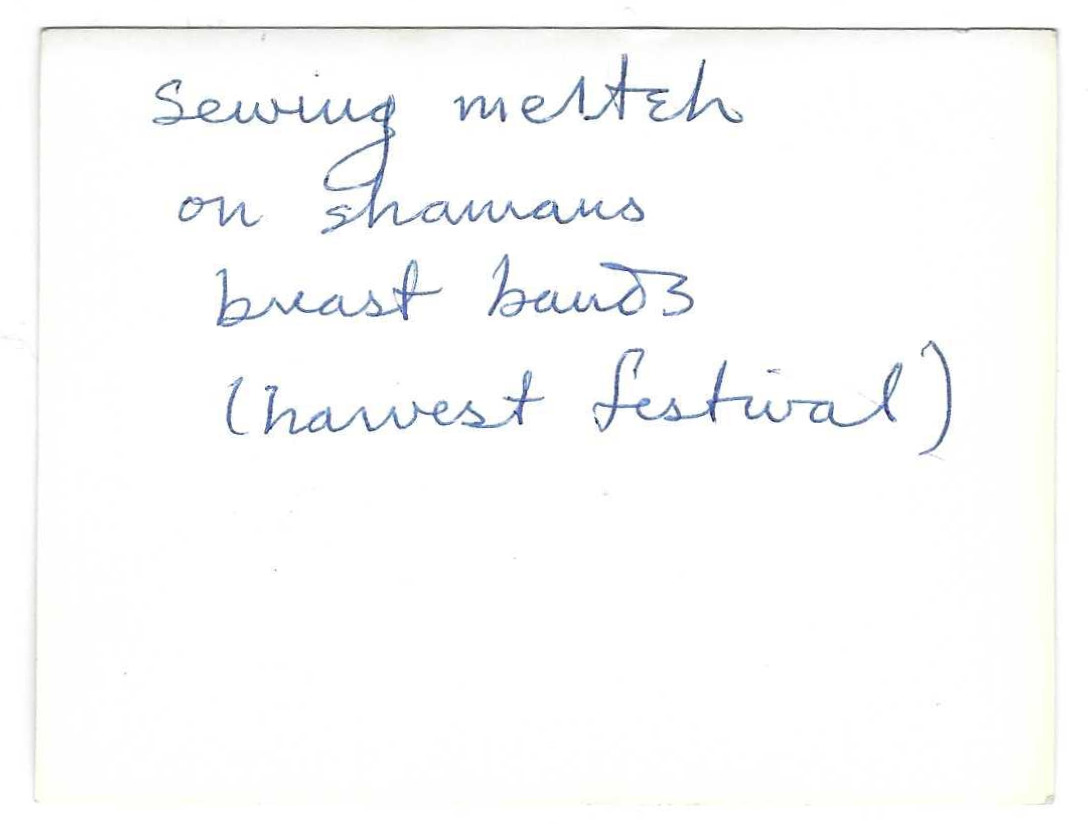 Sewing
on shamans
breast bands
(harvest festival)